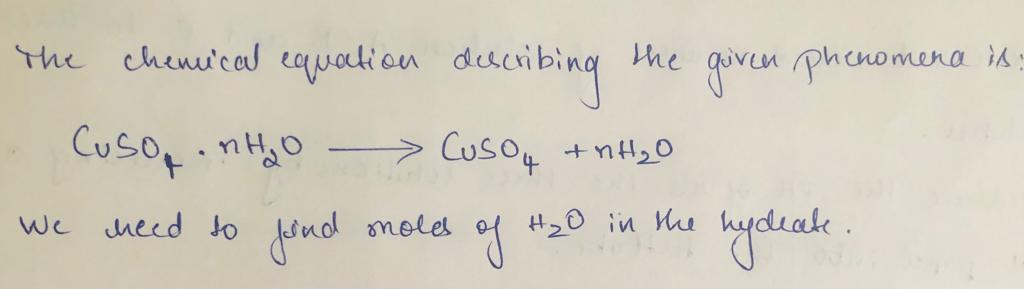 The chemical equation describing the given phenomena is:
CuSO₄ . nH₂O ⟶ CuSO₄ + nH₂O
We need to find moles of H₂O in the hydrate.